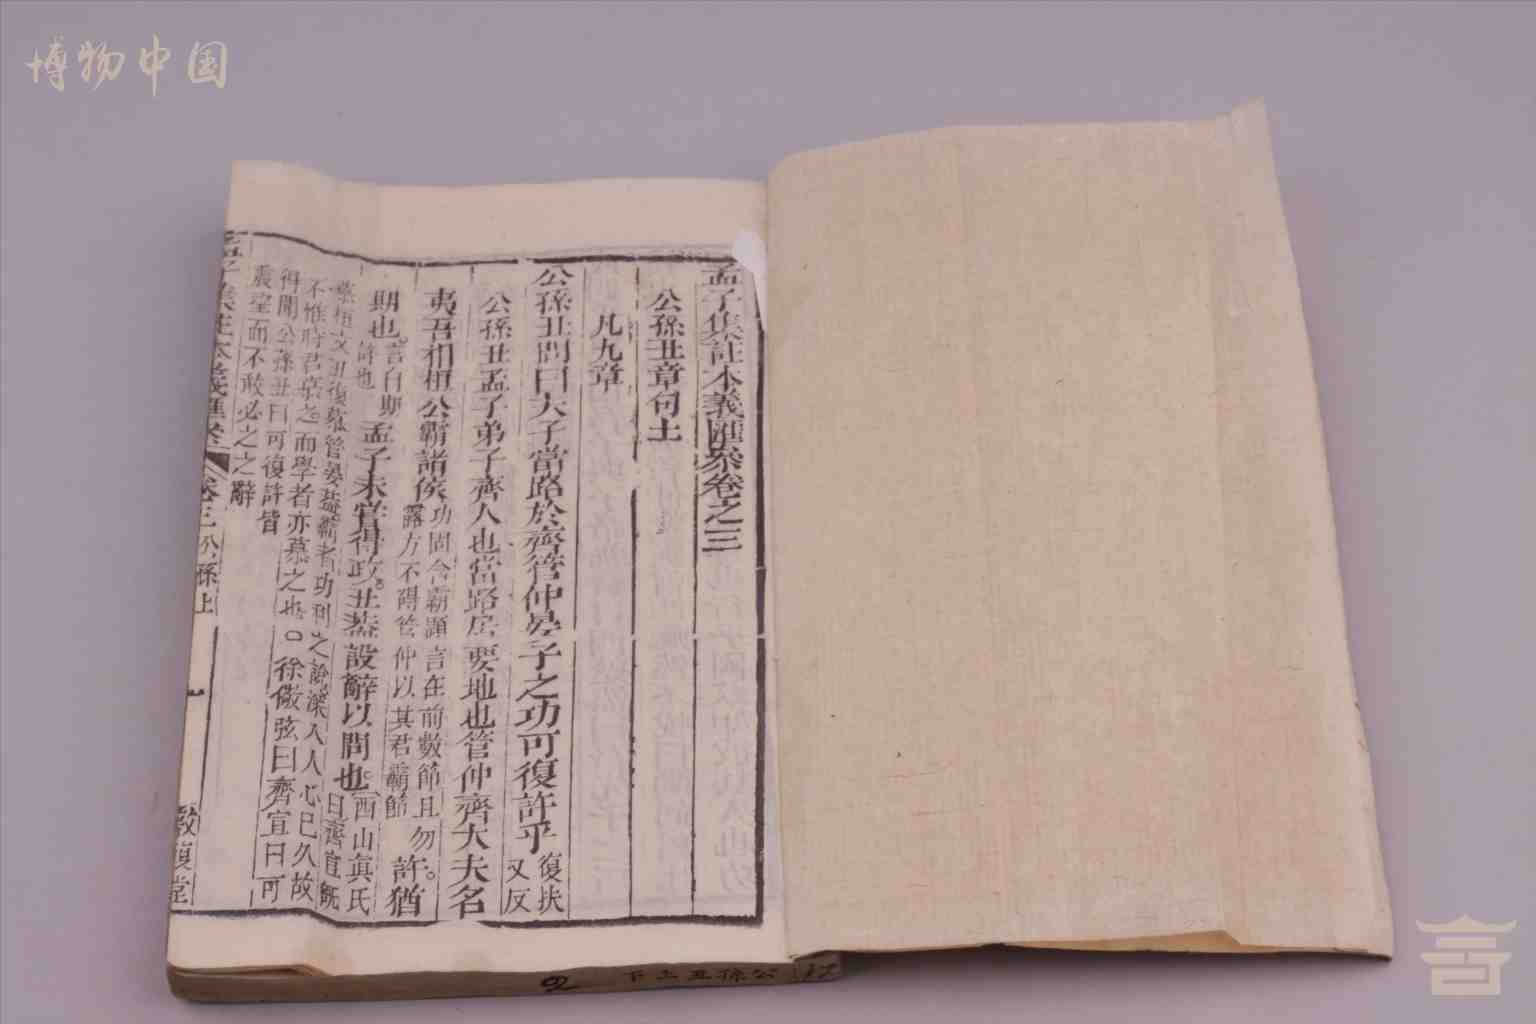 博物中国
孟子集註本義匯叅卷之三
公孫丑章句上
凡九章
公孫丑問曰夫子當路於齊管仲晏子之功可復許乎復扶又反
公孫丑孟子弟子齊人也當路居要地也管仲齊大夫名
夷吾相桓公霸諸侯功固含霸顯言在前數節且勿露方不碍管仲以其君霸節許猶
期也言自期許也孟子未嘗得政丑葢設辭以問也西山眞氏曰齊宣旣
慕桓文丑復慕管晏葢霸者功利之說深入人心已久故
不惟時君慕之而學者亦慕之也○徐儆弦曰齊宣曰可
得聞公孫丑曰可復許皆
震望而不敢必之之辭
孟子集註本義匯叅 卷三 公孫上 一 敦復堂
2 公孫丑上下